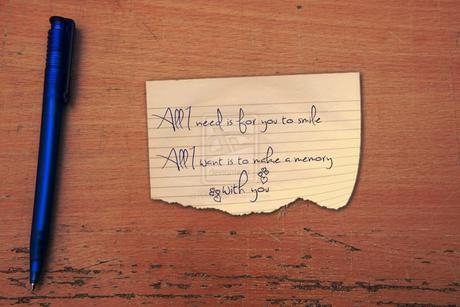 All I need is for you to smile
All I want is to make a memory
with you